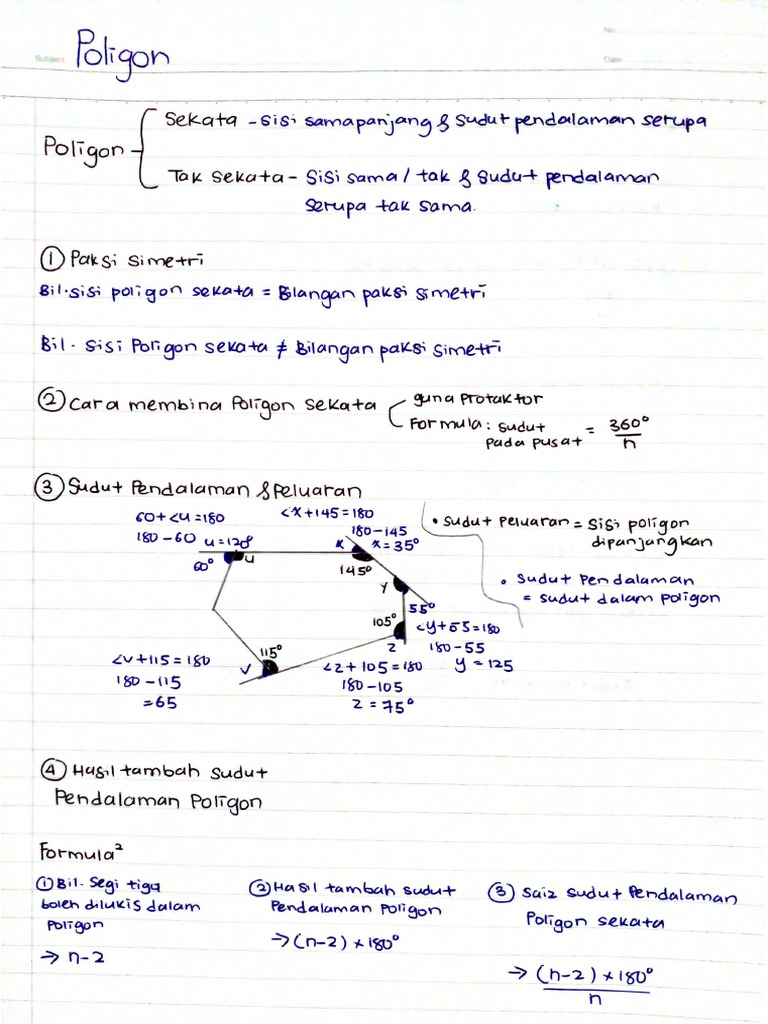 No
Subject
Date
Poligon
Poligon
Sekata - Sisi samapanjang & sudut pendalaman serupa
Tak sekata - Sisi sama / tak & sudut pendalaman
serupa tak sama.
① Paksi Simetri
Bil. sisi poligon sekata = Bilangan paksi simetri
Bil. Sisi Poligon sekata ≠ Bilangan paksi simetri
② Cara membina Poligon Sekata
guna Protaktor
Formula: sudut pada pusat = 360°/n
③ Sudut Pendalaman & Peluaran
60+<u=180
180-60 u=120°
60°
u
<x+145=180
180-145
x x=35°
145°
y
55°
105°
z
<y+55=180
180-55
y=125
<z+105=180
180-105
z=75°
115°
v
<v+115=180
180-115
=65
• Sudut Peluaran = Sisi poligon
dipanjangkan
• Sudut Pendalaman
= sudut dalam poligon
④ Hasil tambah sudut
Pendalaman Poligon
Formula²
① Bil. Segi tiga
boleh dilukis dalam
Poligon
→ n-2
② Hasil tambah sudut
Pendalaman Poligon
→ (n-2) × 180°
③ Saiz sudut Pendalaman
Poligon sekata
→ (n-2) × 180°
n